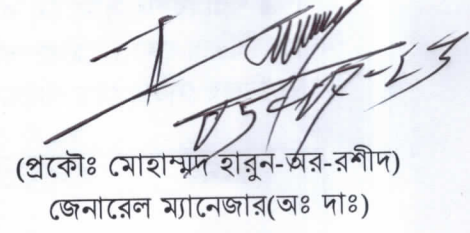 (প্রকৌঃ মোহাম্মদ হারুন-অর-রশীদ)
জেনারেল ম্যানেজার(অঃ দাঃ)